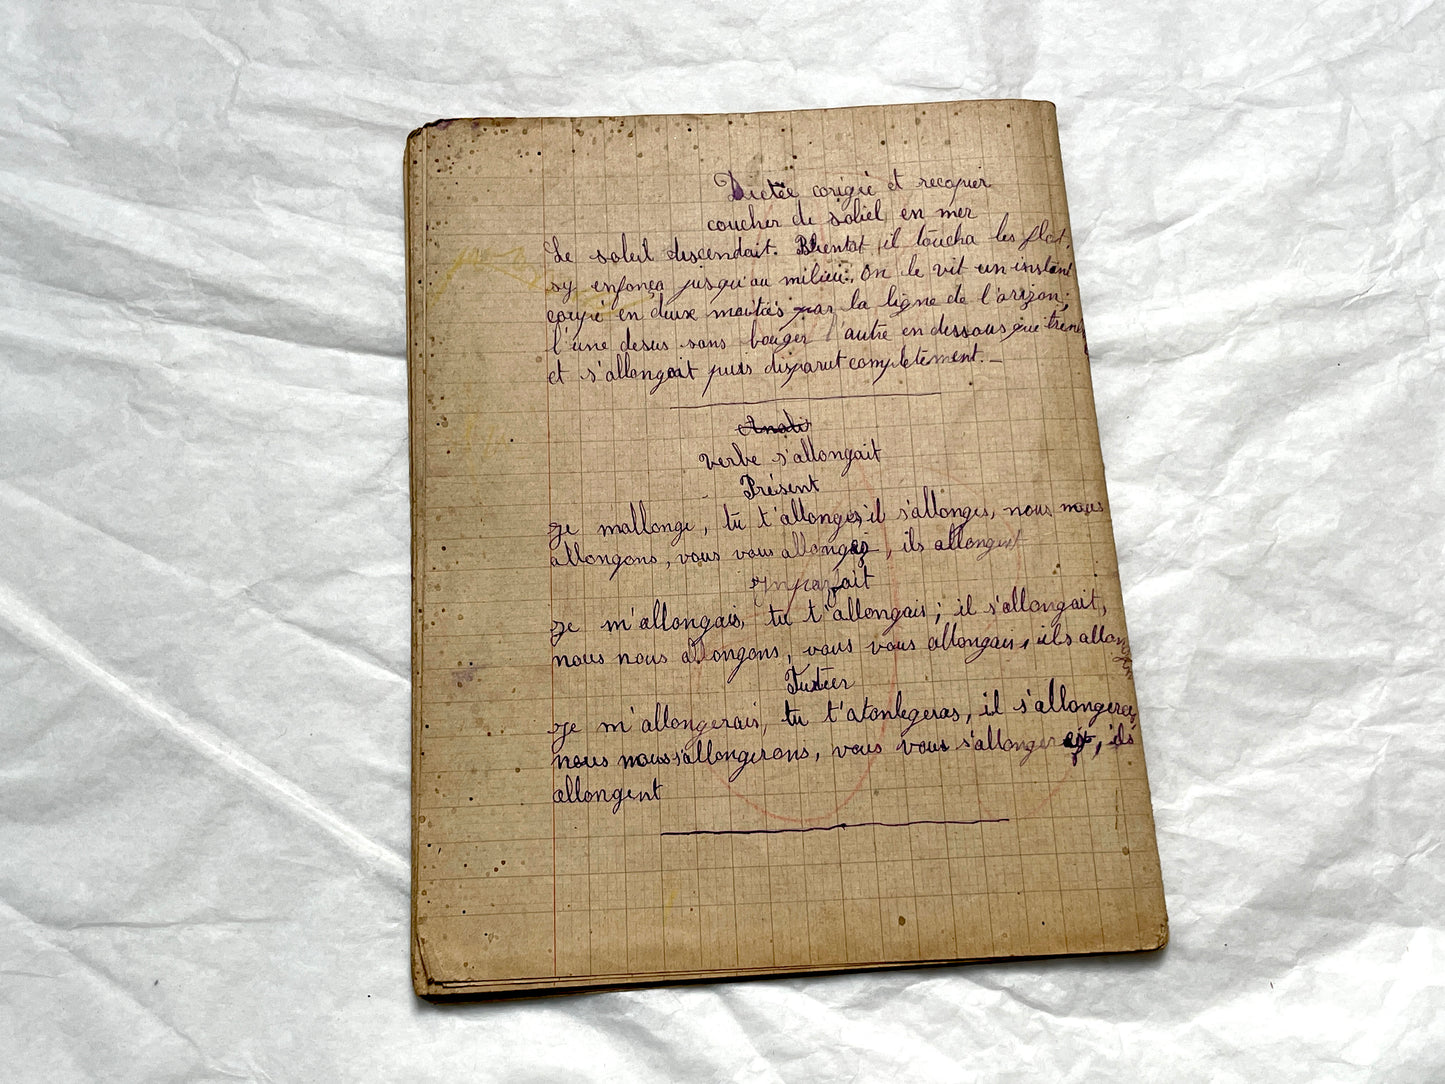 Dictée corigée et recopier
coucher de soliel en mer
Le soleil descendait. Bientot il toucha les flot.
sy enfonça jusqu'au milieu. On le vit un instant
coupé en deux moitiés par la ligne de l'orizon;
l'une desus sans bouger l'autre en dessous que
et s'allongait puis disparut completement. _
Anali
verbe s'allongait
Présent
Je mallonge, tu t'allonges il s'allonges, nous nous
allongons, vous vous allongez, ils allongent
Imparfait
Je m'allongais, tu t'allongais; il s'allongait,
nous nous allongons, vous vous allongais, ils
Futer
Je m'allongerais, tu t'atonlegeras, il
nous nous s'allongerons, vous vous, ils
allongent